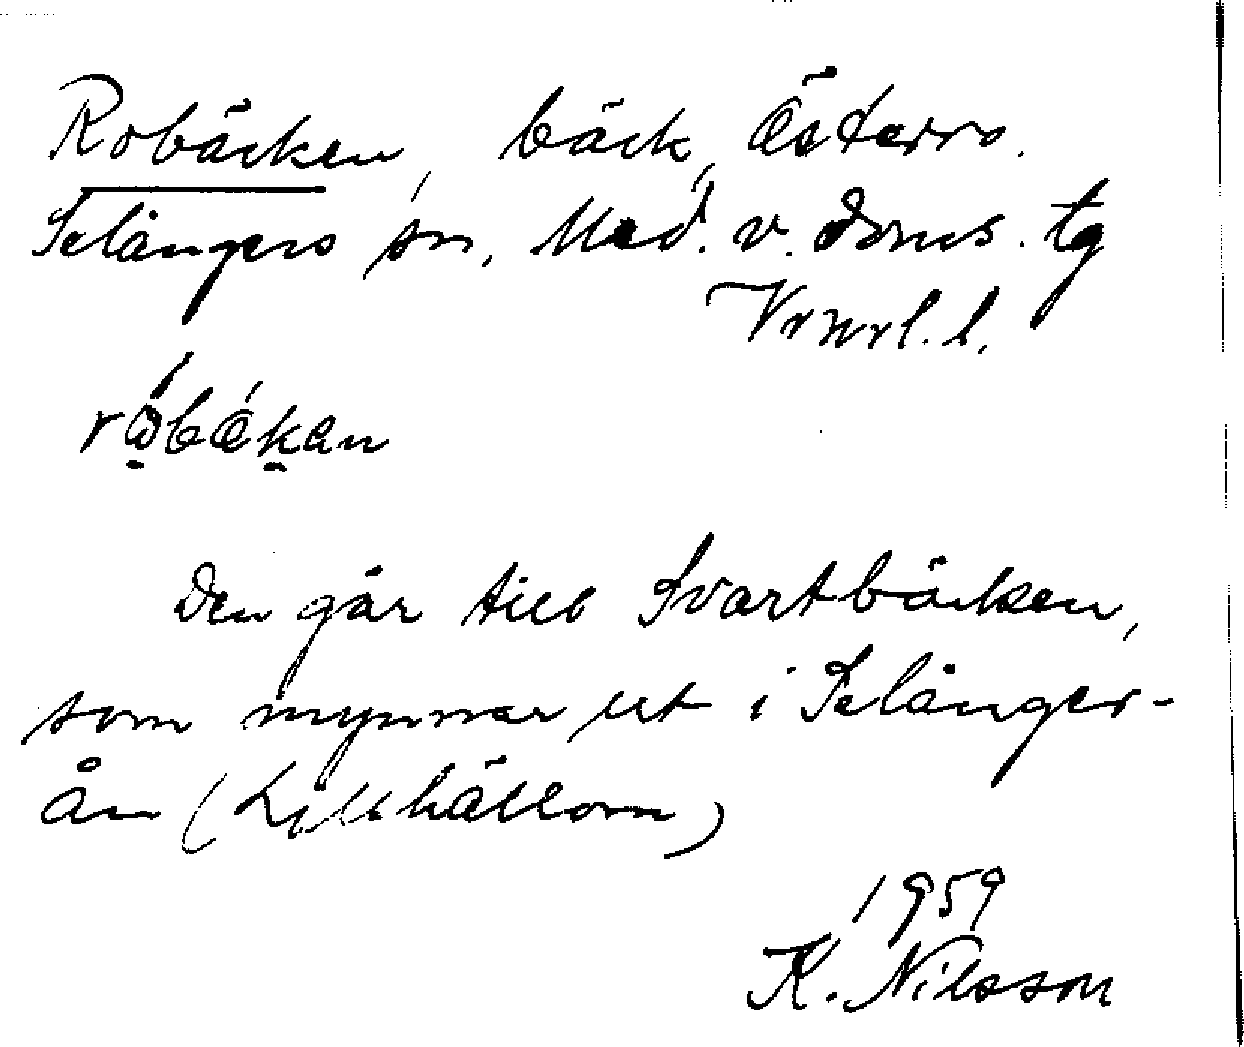 Robäcken, bäck, Österro.
Selångers sn, Med. v. Doms. tg
rώ̣bǽḳen
Den går till Svartbäcken,
som mynnar ut i Selånger-
ån (Lillhällom)
1959
K. Nilsson